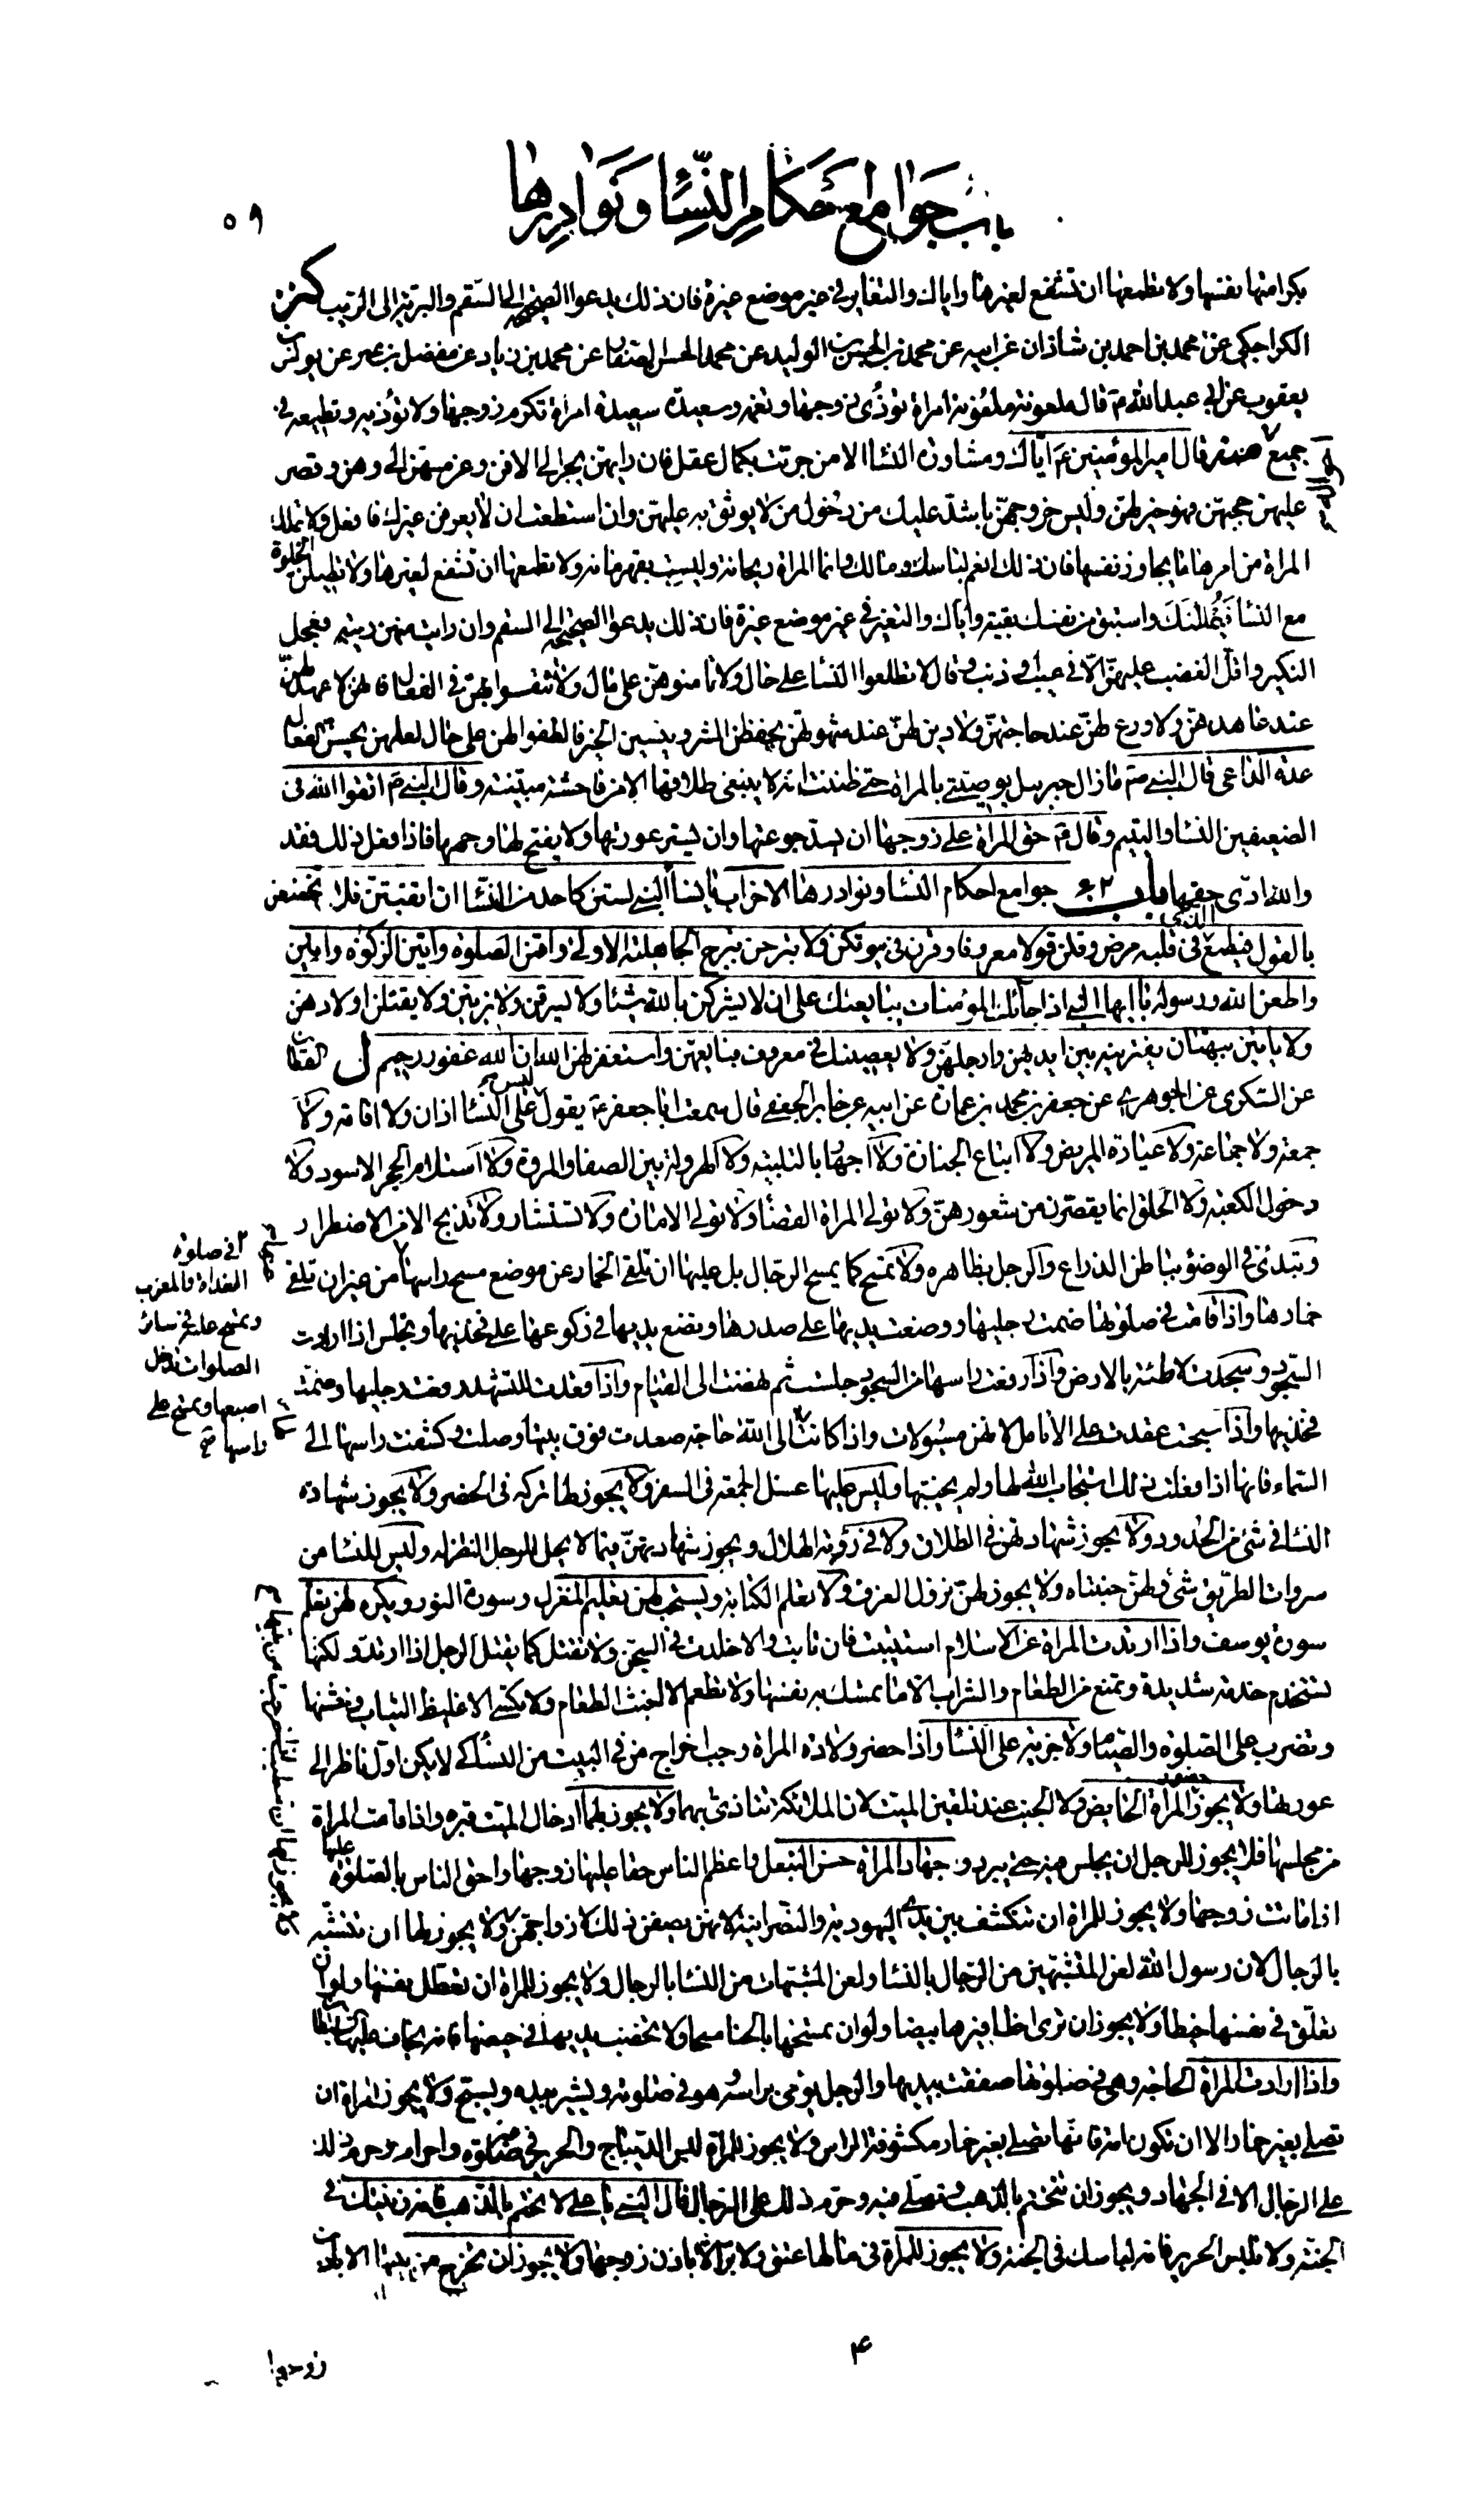 باب جوامع احكام النساء ونوادرها
٥٩
بكرامتها نفسها ولا تطمعها ان تشفع لغيرها واياك والتغاير في غير موضع غيرة فان ذلك يدعوا الصحيحة الى السقم والبرية الى الريب كنز
الكراجكي عن محمد بن احمد بن شاذان عن ابيه عن محمد بن الحسن بن الوليد عن محمد بن الحسن الصفار عن محمد بن زياد عن مفضل بن عمر عن يونس بن
يعقوب عن ابي عبدالله ع قال ملعونة ملعونة امراة تؤذي زوجها وتغمه وسعيدة سعيدة امراة تكرم زوجها ولا تؤذيه وتطيعه في
جميع قال امير المؤمنين ع اياك ومشاورة النسا الا من جربت بكمال عقل فان رايهن يجر الى الافن وعزمهن الى وهن وقصر
عليهن حجبهن فهو خير لهن وليس خروجهن باشد عليك من دخول من لا يوثق به عليهن وان استطعت ان لا يعرفن غيرك فافعل ولا تملك
المراة من امرها ما يجاوز نفسها فان ذلك انعم لبالك وانما المراة ريحانة وليست بقهرمانة ولا تطمعها ان تشفع لغيرها ولا تطيلن الخلوة
مع النسا فيمللنك واستبق من نفسك بقية واياك والتغير في غير موضع غيرة فان ذلك يدعو الصحيحة الى السقم وان رايت منهن ريبة فعجل
النكير واقل الغضب عليهن الا في عيب او ذنب وقال لا تطلعوا النسا على حال ولا تامنوهن على مال ولا تثقوا بهن في الفعال فانهن لا عهد لهن
عند عاهدهن ولا ورع لهن عند حاجتهن ولا دين لهن عند شهوتهن يحفظن الشر وينسين الخير فالطفوا لهن على حال لعلهن يحسن الفعال
عدة الداعي قال النبي ص ما زال جبرئيل يوصيني بالمراة حتى ظننت انه لا ينبغي طلاقها الا من فاحشة مبينة وقال النبي ص اتقوا الله في
الضعيفين النسا واليتيم وقال ص حق المراة على زوجها ان يسد جوعتها وان يستر عورتها ولا يقبح لها وجها فاذا فعل ذلك فقد
والله ادى حقها باب جوامع احكام النسا ونوادرها الاحزاب يا نسا النبي لستن كاحد من النسا ان اتقيتن فلا تخضعن
بالقول فيطمع الذي في قلبه مرض وقلن قولا معروفا وقرن في بيوتكن ولا تبرجن تبرج الجاهلية الاولى واقمن الصلوة واتين الزكوة
واطعن الله ورسوله يا ايها النبي اذا جاءك المؤمنات يبايعنك على ان لا يشركن بالله شيئا ولا يسرقن ولا يزنين ولا يقتلن اولادهن
ولا ياتين ببهتان يفترينه بين ايديهن وارجلهن ولا يعصينك في معروف فبايعهن واستغفر لهن الله ان الله غفور رحيم ل القطان
عن السكرى عن الجوهري عن جعفر بن محمد بن عمارة عن ابيه عن جابر الجعفي قال سمعت ابا جعفر ع يقول ليس على النسا اذان ولا اقامة ولا
جمعة ولا جماعة ولا عيادة المريض ولا اتباع الجنازة ولا اجهار بالتلبية ولا الهرولة بين الصفا والمروة ولا استلام الحجر الاسود ولا
دخول الكعبة ولا الحلق انما يقصرن من شعورهن ولا تولي المراة القضا ولا تولي الامارة ولا تستشار ولا تذبح الا من الاضطرار
وتبدئ في الوضوء بباطن الذراع والرجل بظاهره ولا تمسح كما يمسح الرجال بل عليها ان تلقي الخمار عن موضع مسح راسها من غير ان تلقي
خمارها واذا قامت في صلوتها ضمت رجليها ووضعت يديها على صدرها وتضع يديها في ركوعها على فخذيها وتجلس اذا ارادت
السجود وسجدت لاطئة بالارض واذا رفعت راسها من السجود جلست ثم نهضت الى القيام واذا قعدت للتشهد رفعت رجليها وضمت
فخذيها واذا سبحت عقدت على الانامل لانهن مسئولات واذا كانت لها الى الله حاجة صعدت فوق بيتها وصلت وكشفت راسها الى
السماء فانها اذا فعلت ذلك استجاب الله لها ولم يخيبها وليس عليها غسل الجمعة في السفر ولا يجوز لها تركه في الحضر ولا يجوز شهادة
النسا في شئ من الحدود ولا يجوز شهادتهن في الطلاق ولا في رؤية الهلال ويجوز شهادتهن فيما لا يحل للرجل النظر اليه وليس للنسا من
سروات الطريق شئ ولهن جنبتاه ولا يجوز لهن نزول الغرف ولا تعلم الكتابة ويستحب لهن تعليم المغزل وسورة النور ويكره لهن تعلم
سورة يوسف واذا ارتدت المراة عن الاسلام استتيبت فان تابت والا خلدت في السجن ولا تقتل كما يقتل الرجل اذا ارتد ولكنها
تستخدم خدمة شديدة وتمنع من الطعام والشراب الا ما تمسك به نفسها ولا تطعم الا جشب الطعام ولا تكسى الا غليظ الثياب وخشنها
وتضرب على الصلوة والصيام ولا جزية على النسا واذا حضر ولادة المراة وجب اخراج من في البيت من النسا كي لا يكن اول ناظر الى
عورتها ولا يجوز حضور المراة الحايض ولا الجنب عند تلقين الميت لان الملائكة تتاذى بهما ولا يجوز لهما ادخال الميت قبره واذا قامت المراة
من مجلسها فلا يجوز للرجل ان يجلس فيه حتى يبرد وجهاد المراة حسن التبعل واعظم الناس حقا عليها زوجها واحق الناس بالصلوة عليها
اذا ماتت زوجها ولا يجوز للمراة ان تنكشف بين يدي اليهودية والنصرانية لانهن يصفن ذلك لازواجهن ولا يجوز لها ان تتشبه
بالرجال لان رسول الله لعن المتشبهين من الرجال بالنسا ولعن المتشبهات من النسا بالرجال ولا يجوز للمراة ان تعطل نفسها ولو ان
تعلق في عنقها خيطا ولا يجوز ان ترى اظافيرها بيضا ولو ان تمسحها بالحنا مسحا ولا تخضب يديها في حيضها فانه يخاف عليها الشيطان
واذا ارادت المراة الحاجة وهي في صلوتها صفقت بيديها والرجل يومي براسه وهو في صلوته ويشير بيده ويسبح ولا يجوز للمراة ان
تصلي بغير خمار الا ان تكون امة فانها تصلي بغير خمار مكشوفة الراس ولا يجوز للمراة لبس الديباج والحرير في غير صلوة واحرام وحرم ذلك
على الرجال الا في الجهاد ويجوز ان تتختم بالذهب وتصلي فيه وحرم ذلك على الرجال قال النبي يا علي لا تختم بالذهب فانه زينتك في
الجنة ولا تلبس الحرير فانه لباسك في الجنة ولا يجوز للمراة في مالها عتق ولا بر الا باذن زوجها ولا يجوز ان تخرج من بيتها الا باذن
في صلوة
الغداة والمغرب
وتمسح عليه في سائر
الصلوات تدخل
اصبعها وتمسح على
راسها
زوجها
٤